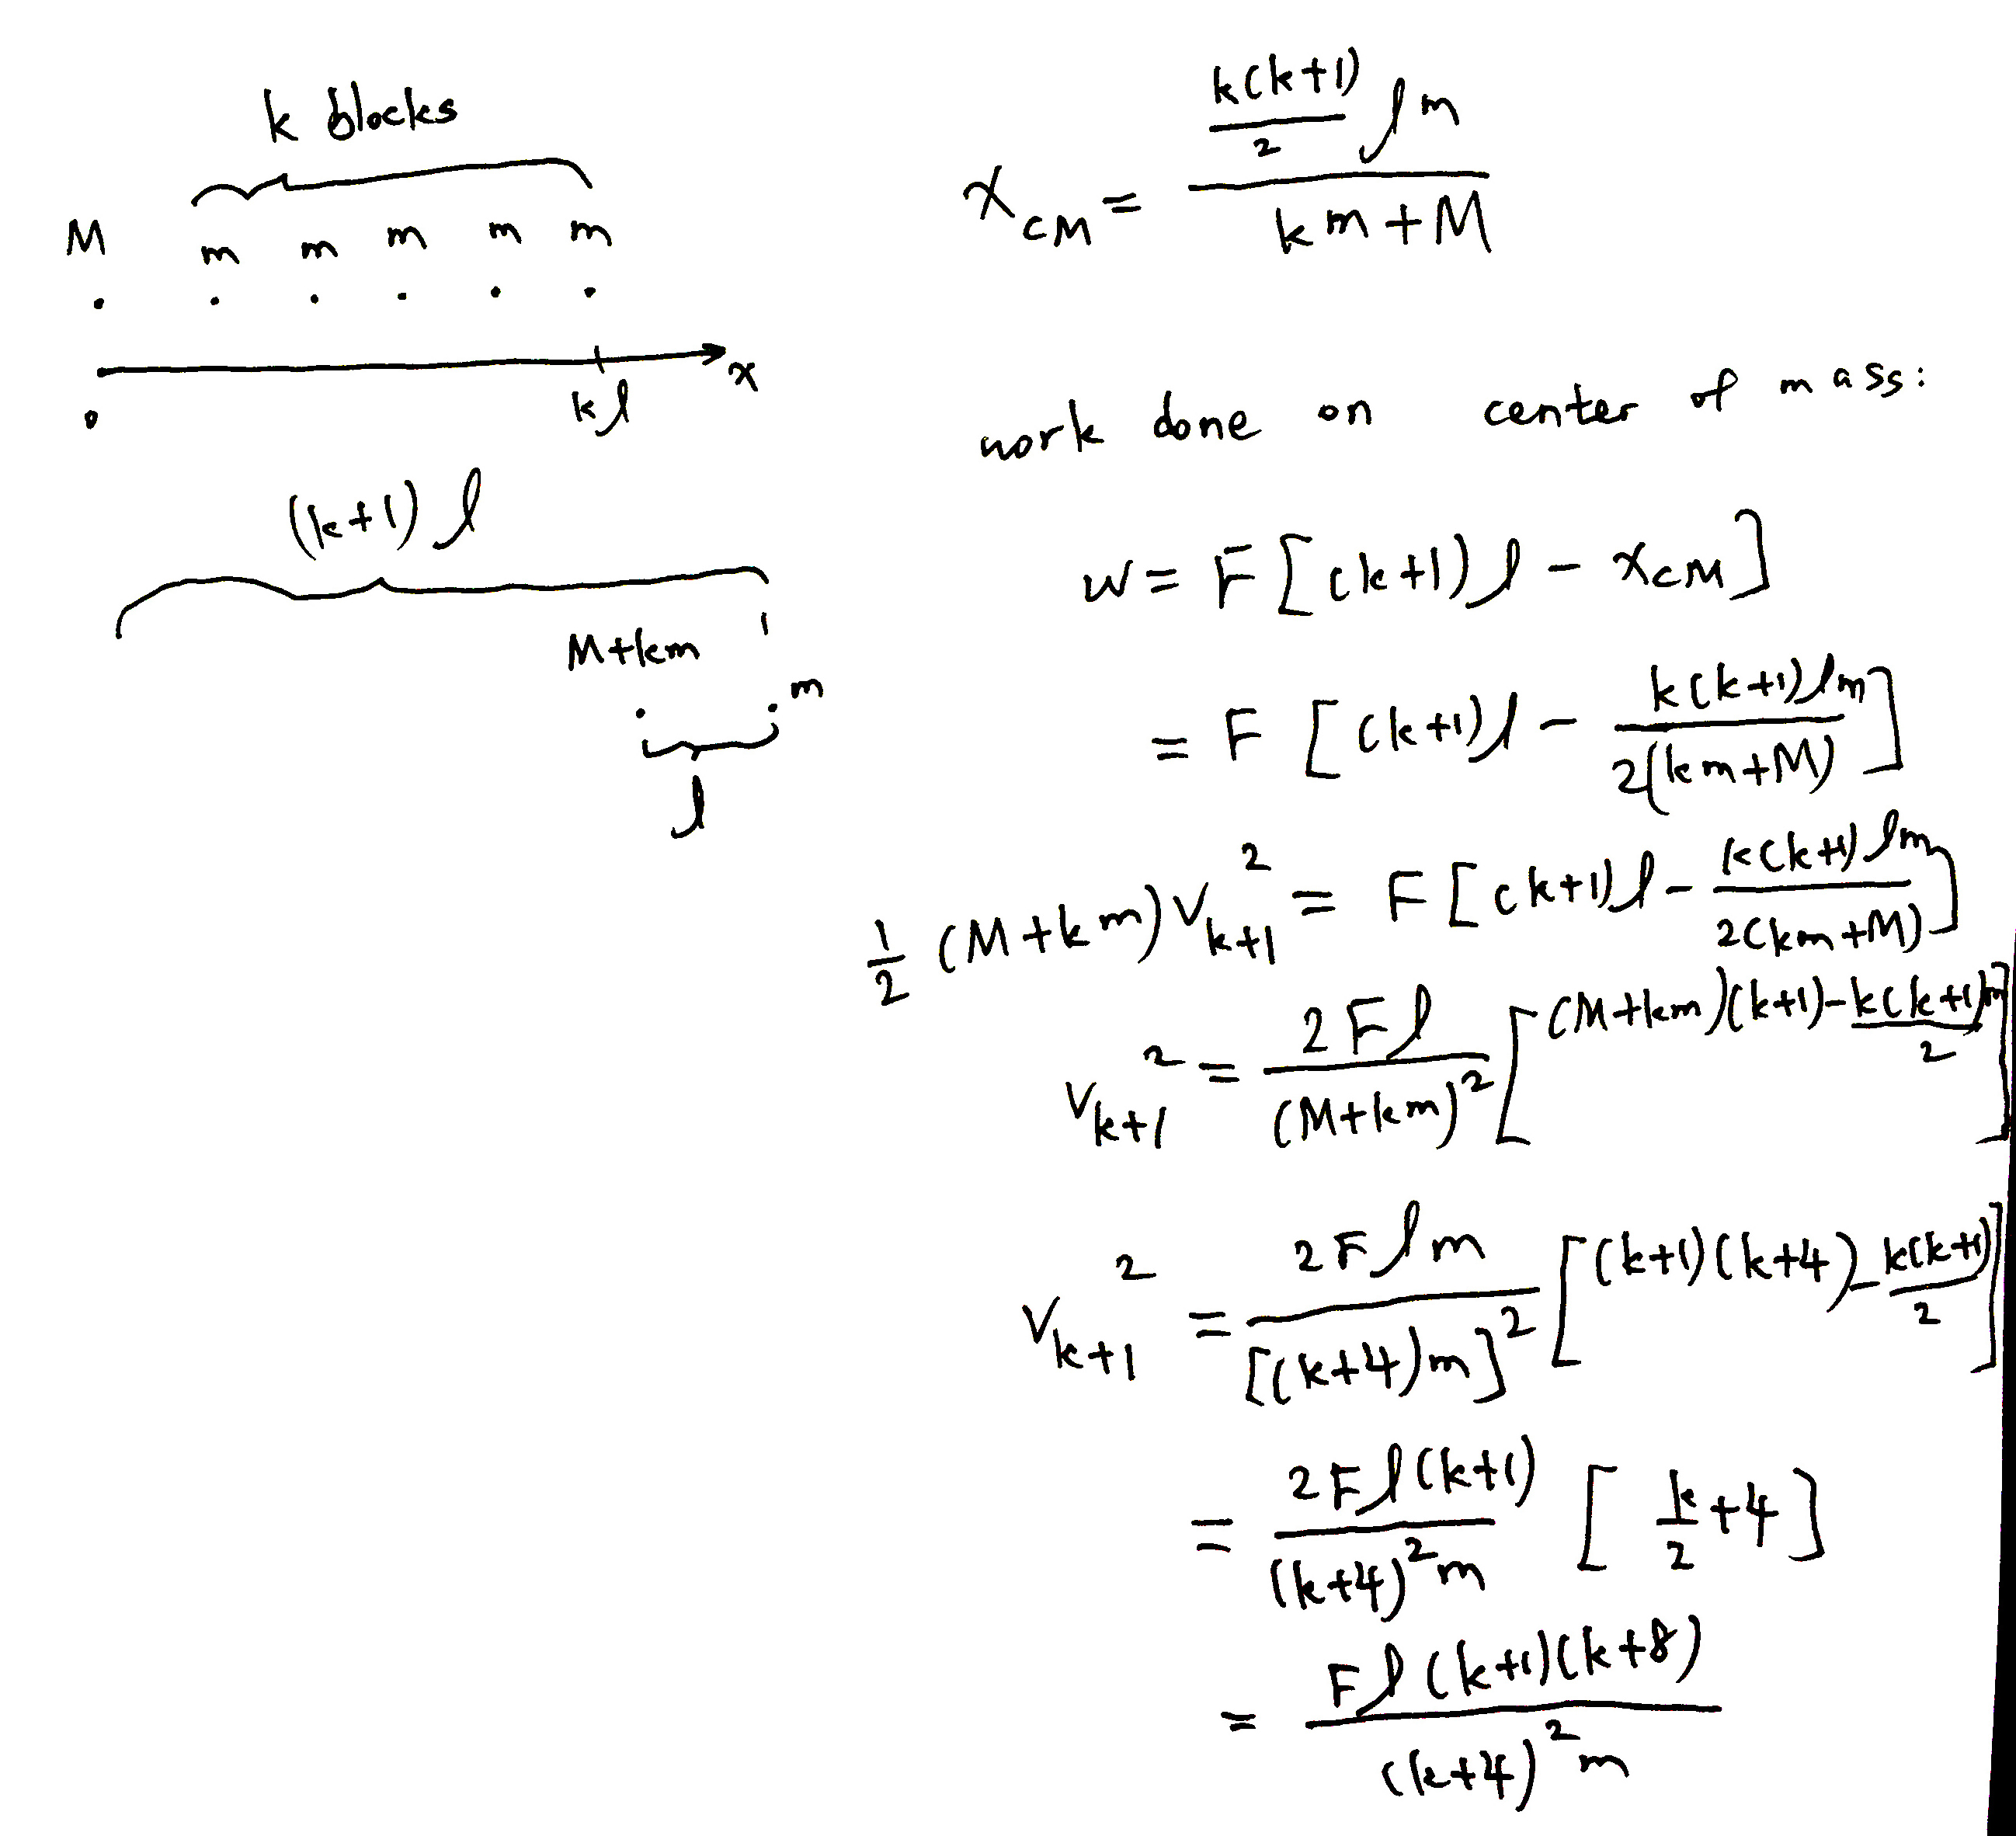 k blocks
M m m m m m
0 kl x
(k+1) l
M+km m
l
x_CM = (k(k+1)/2 l m) / (km+M)
work done on center of mass:
W = F [(k+1)l - x_CM]
= F [(k+1)l - k(k+1)lm / 2(km+M)]
1/2 (M+km) V_{k+1}^2 = F [(k+1)l - k(k+1)lm / 2(km+M)]
V_{k+1}^2 = 2Fl / (M+km)^2 [(M+km)(k+1) - k(k+1)m / 2]
V_{k+1}^2 = 2Flm / [(k+4)m]^2 [(k+1)(k+4) - k(k+1) / 2]
= 2Fl(k+1) / (k+4)^2 m [k/2 + 4]
= Fl(k+1)(k+8) / (k+4)^2 m